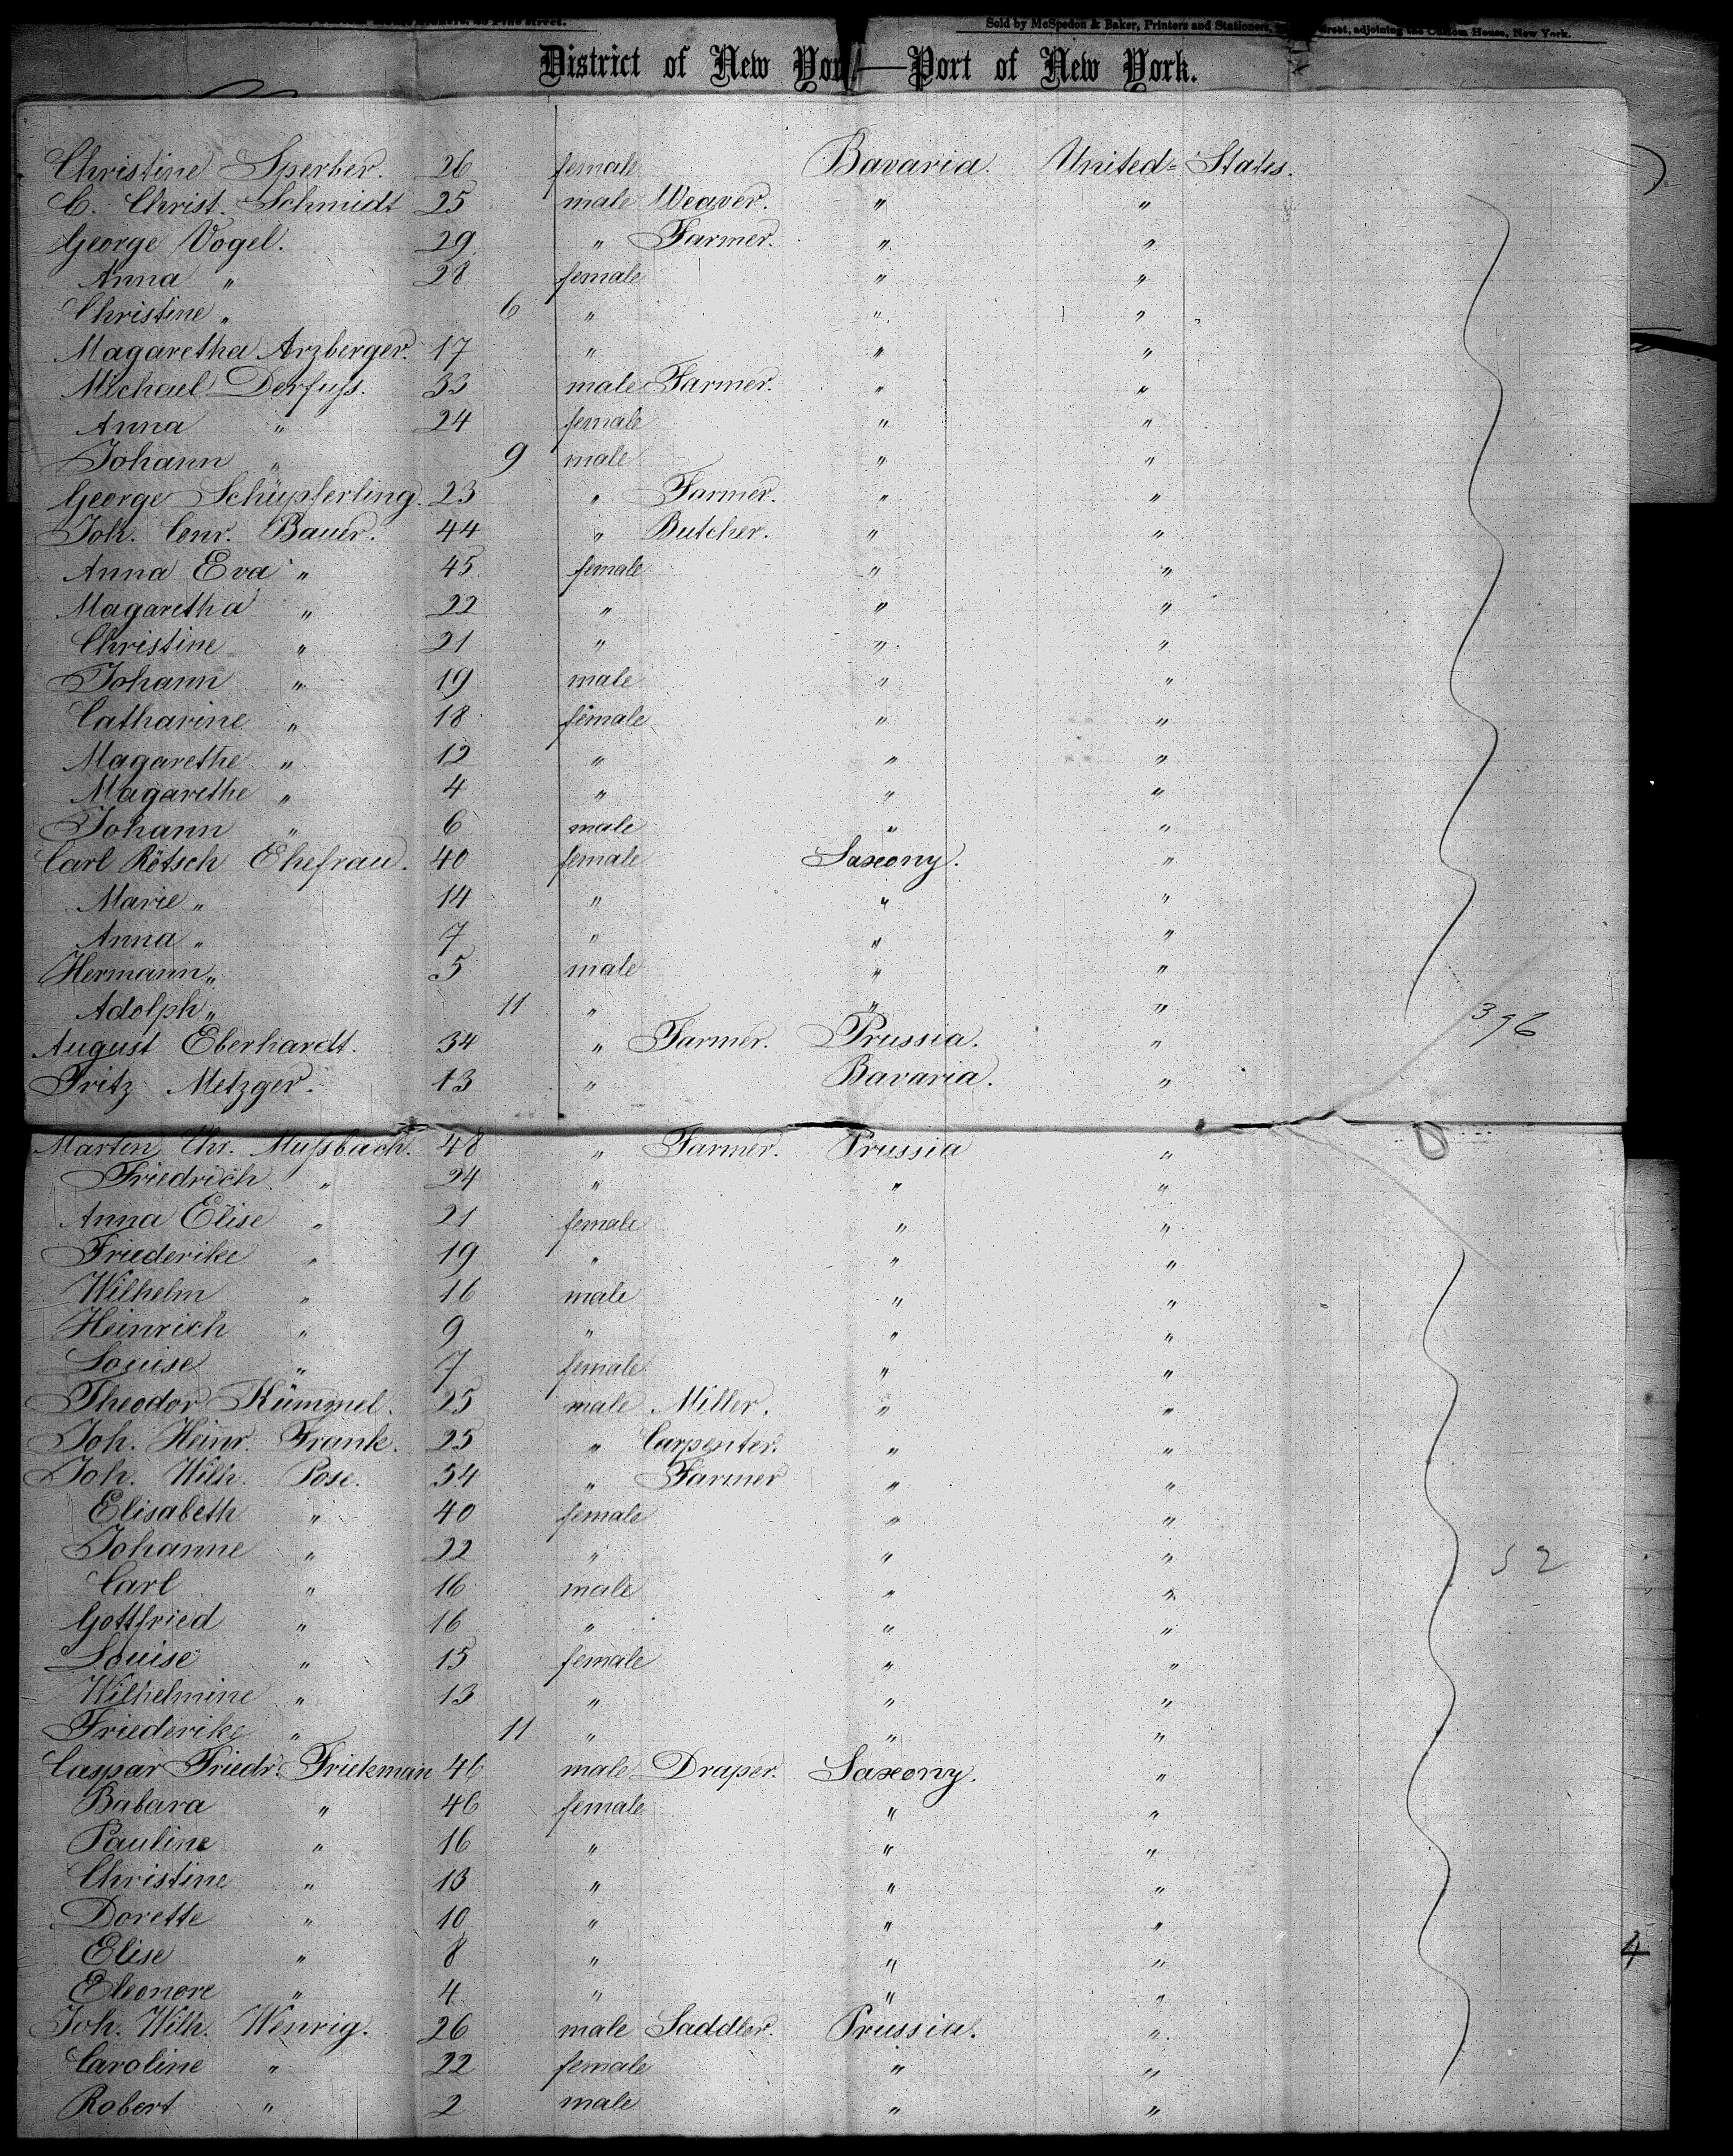 Sold by McSpedon & Baker, Printers and Stationers, Street, adjoining the Custom House, New York.
District of New York—Port of New York.
Christine Sperber. 26 female Bavaria. United-States.
C. Christ. Schmidt 25 male Weaver. " "
George Vogel. 29 " Farmer. " "
Anna " 28 female " "
Christine " 6 " " "
Magaretha Arzberger. 17 " " "
Michael Derfuſs. 33 male Farmer. " "
Anna " 24 female " "
Johann " 9 male " "
George Schüpferling. 23 " Farmer. " "
Joh. Conr. Bauer. 44 " Butcher. " "
Anna Eva " 45 female " "
Magaretha " 22 " " "
Christine " 21 " " "
Johann " 19 male " "
Catharine " 18 female " "
Magarethe " 12 " " "
Magarethe " 4 " " "
Johann " 6 male " "
Carl Rötsch Ehefrau. 40 female Saxony. "
Marie " 14 " " "
Anna " 7 " " "
Hermann " 5 male " "
Adolph " 11 " " "
396
August Eberhardt. 34 " Farmer. Prussia. "
Fritz Metzger. 13 " Bavaria. "
Marten Chr. Muſsbach. 48 " Farmer. Prussia "
Friedrich " 24 " " "
Anna Elise " 21 female " "
Friederike " 19 " " "
Wilhelm " 16 male " "
Heinrich " 9 " " "
Louise " 7 female " "
Theodor Kümmel. 25 male Miller. " "
Joh. Heinr. Frank. 25 " Carpenter. " "
Joh. Wilh. Pose. 54 " Farmer " "
Elisabeth " 40 female " "
Johanne " 22 " " "
52
Carl " 16 male " "
Gottfried " 16 " " "
Louise " 15 female " "
Wilhelmine " 13 " " "
Friederike " 11 " " "
Caspar Friedr. Friekman 46 male Draper. Saxony. "
Babara " 46 female " "
Pauline " 16 " " "
Christine " 13 " " "
Dorette " 10 " " "
Elise " 8 " " "
4
Eleonore " 4 " " "
Joh. Wilh. Wenrig. 26 male Saddler. Prussia. "
Caroline " 22 female " "
Robert " 2 male " "